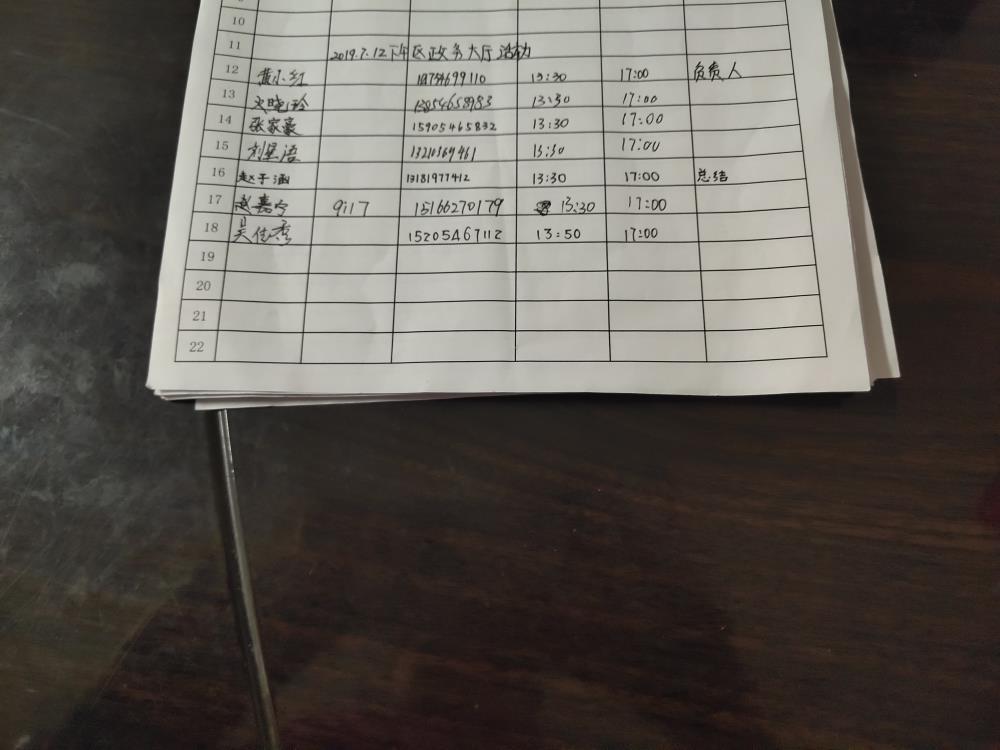 10
11 2019.7.12下午区政务大厅活动
12 黄小红 18754699110 13:30 17:00 负责人
13 晓玲 13854658983 13:30 17:00
14 张家豪 15905465832 13:30 17:00
15 刘星语 13210369461 13:30 17:00
16 赵子涵 13181977412 13:30 17:00 总结
17 赵嘉宁 9117 15166270179 13:30 17:00
18 吴佳秀 15205467112 13:50 17:00
19
20
21
22